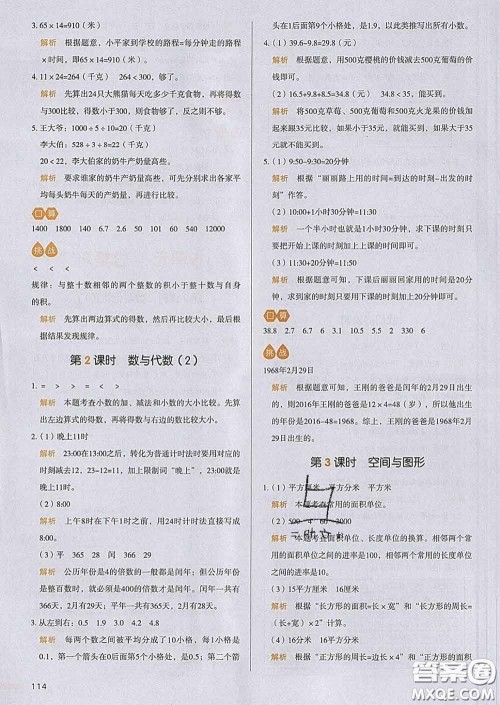 3. 65×14=910（米）
解析 根据题意，小平家到学校的路程=每分钟走的路程×时间，即65×14=910（米）。
4. 11×24=264（千克） 264＜300，够了。
解析 先算出24只大熊猫每天吃多少千克食物，再将得数与300比较，得数小于300，够了，反之则不够。
5. 王大爷：1000÷5÷10=20（千克）
李大伯：528÷3÷8=22（千克）
20＜22，李大伯家的奶牛产奶量高些。
解析 要求谁家的奶牛产奶量高些，必须分别求出各家平均每头奶牛每天的产奶量，再进行比较。
口算
1400 1800 140 6.7 2.6 50 101 60 2000 12.7
挑战
＜ ＜ ＜ ＜
规律：与整十数相邻的两个整数的积小于整十数与自身的积。
解析 先算出两边算式的得数，然后再比较大小，最后根据结果发现规律。
第2课时 数与代数（2）
1. = ＞ ＞ = ＞ ＞
解析 本题考查小数的加、减法和小数的大小比较。先算出左边算式的得数，再和右边的小数比较大小。
2.（1）晚上11时
解析 23:00在13:00之后，转化为普通计时法要用对应的时刻减去12，23-12=11，加上限制词“晚上”，即23:00是晚上11时。
（2）8:00
解析 上午8时在下午1时之前，用24时计时法直接写成8:00。
（3）平 365 28 闰 366 29
解析 公历年份是4的倍数的一般都是闰年；但公历年份是整百数时，就必须是400的倍数才是闰年。闰年一共有366天，2月有29天；平年一共有365天，2月有28天。
3. 从左到右：0.5 1.9 3.0 4.2
解析 每两个整数之间被平均分成了10小格，每1小格是0.1，第一个箭头在0后面第5个小格处，是0.5；第二个箭
114
头在1后面第9个小格处，是1.9，以此类推写出所有小数。
4.（1）39.6-9.8=29.8（元）
解析 用买500克樱桃的价钱减去500克葡萄的价钱即可。
34.8＜35，能。
解析 将500克草莓、500克葡萄和500克火龙果的价钱加起来，如果小于35元，就能买到，如果大于35元，就不能买到。
5.（1）9:50-9:30=20分钟
解析 根据“丽丽路上用的时间=到达的时刻-出发的时刻”作答。
（2）10:00+1小时30分钟=11:30
解析 一个半小时也就是1小时30分钟，求下课的时刻只要把开始上课的时刻加上上课的时间即可。
（3）11:30+20分钟=11:50
解析 根据题意可知，下课后丽丽回家用的时间是20分钟，求到家的时刻，只要用下课的时刻加上20分钟即可。
口算
38.8 2.7 6.7 6 3 1.5 22 330 6
挑战
1968年2月29日
解析 根据题意可知，王刚的爸爸是闰年的2月29日出生的，则2016年王刚的爸爸是12×4=48（岁），所以他出生的年份是2016-48=1968。王刚的爸爸是1968年2月29日出生的。
第3课时 空间与图形
1.（1）平方厘米 平方分米 平方米
解析 本题考查常用的面积单位。
（2）500 4 60 2000
解析 本题考查面积单位、长度单位的换算。相邻两个常用的面积单位之间的进率是100，相邻两个常用的长度单位之间的进率是10。
（3）15平方分米 16分米
解析 根据“长方形的面积=长×宽”和“长方形的周长=（长+宽）×2”计算即可。
（4）16平方厘米 16厘米
解析 根据“正方形的周长=边长×4”和“正方形的面积
答案圈
MXQE.COM